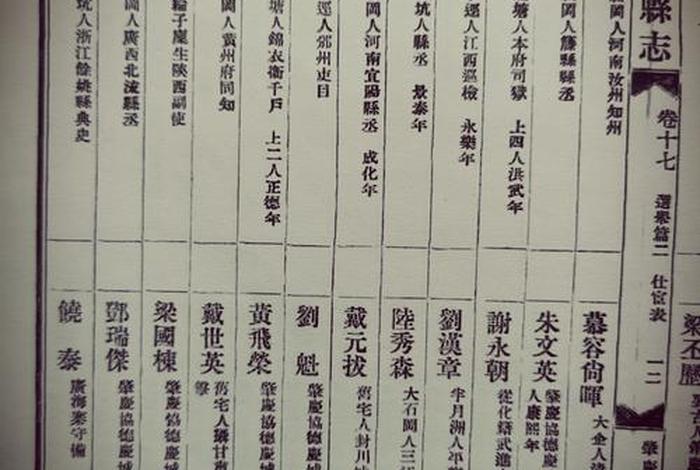 縣志
卷十七
選舉篇二
仕宦表
一二
岡人河南汝州知州
岡人縣丞
塘人本府司獄 上四人洪武年
逕人江西巡檢 永樂年
坑人縣丞 景泰年
岡人河南宜陽縣丞 成化年
逕人鄧州吏目
塘人錦衣衞千戶 上二人正德年
岡人黃州府同知
輪子廩生陝西副使
岡人廣西北流縣丞
坑人浙江餘姚縣典史
慕容尙暉 大企人
朱文英 肇慶協德慶 人康熙年
謝永朝 從化籍武進
劉漢章 半月湖人平
陸秀森 大石岡人三
戴元拔 舊宅人封川
劉魁 肇慶協德慶城
黃飛榮 肇慶協德慶城
戴世英 舊宅人驎甘
梁國棟 肇慶協德慶城
鄧瑞傑 肇慶協德慶城
饒泰 廣海寨守備